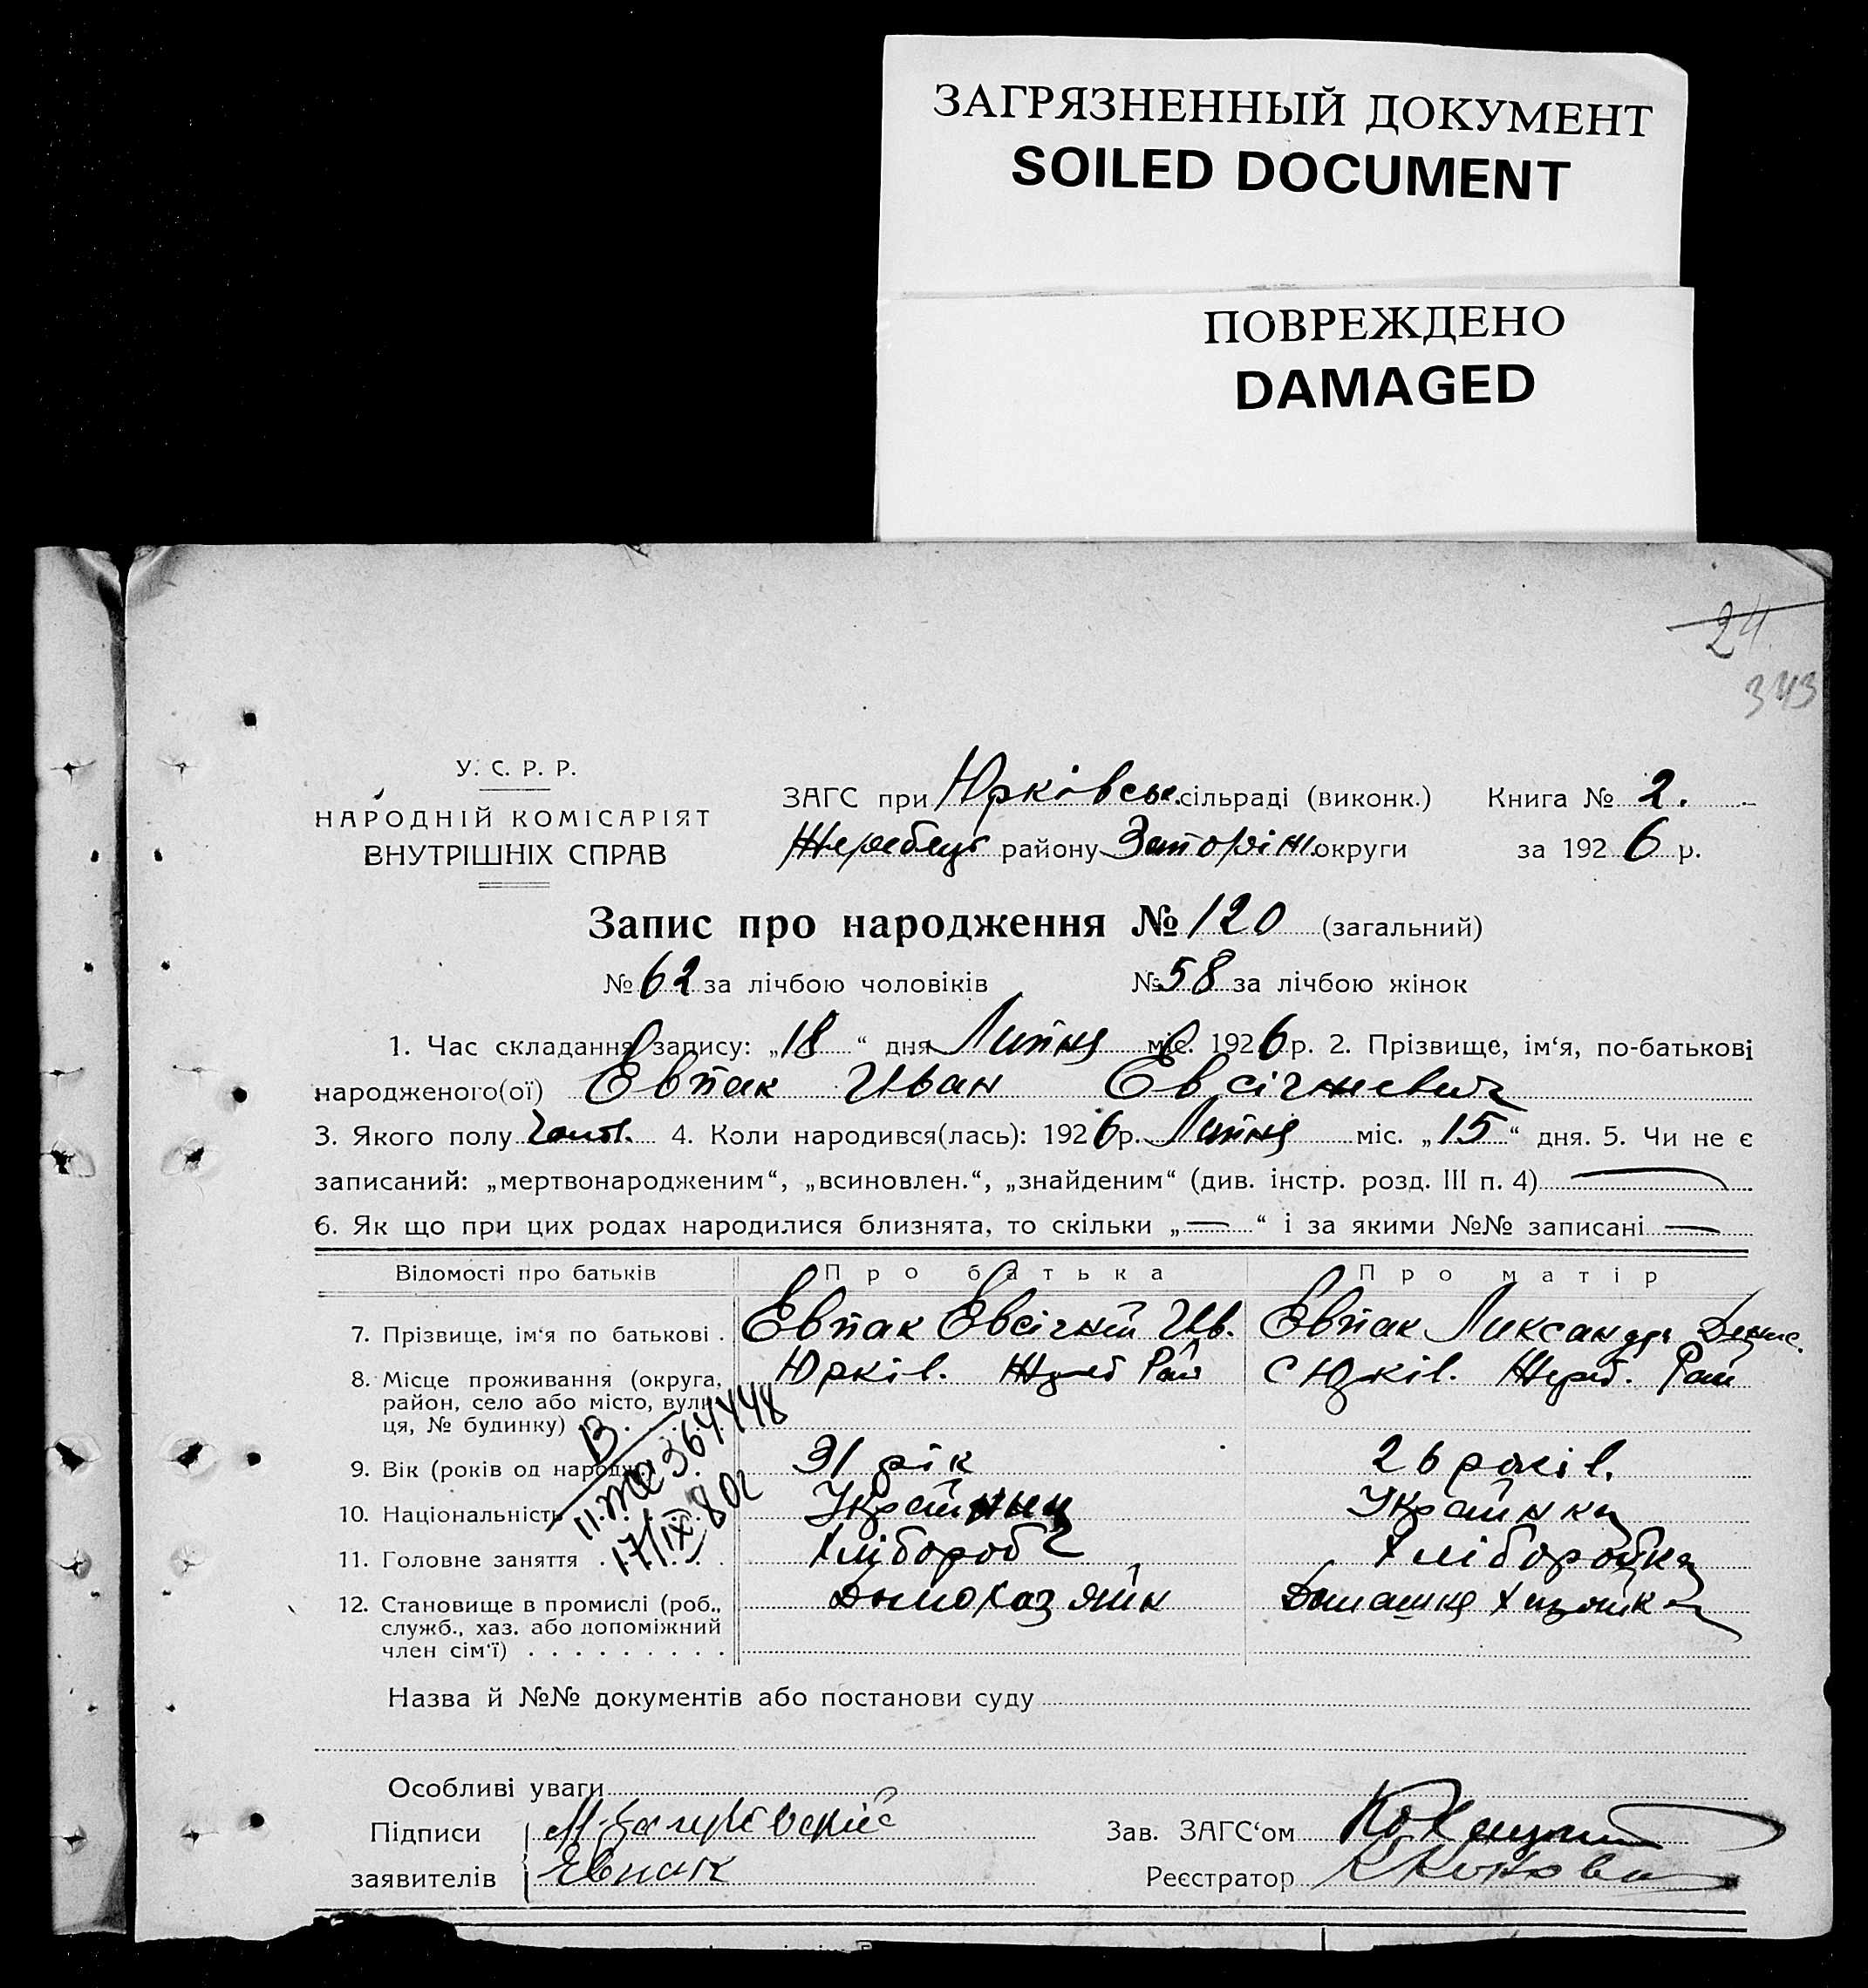 ЗАГРЯЗНЕННЫЙ ДОКУМЕНТ
SOILED DOCUMENT
ПОВРЕЖДЕНО
DAMAGED
24
343
У. С. Р. Р.
НАРОДНІЙ КОМІСАРІЯТ
ВНУТРІШНІХ СПРАВ
ЗАГС при Юрківськ. сільраді (виконк.) Книга № 2.
Жеребець району Запоріж. округи за 1926 р.
Запис про народження № 120 (загальний)
№ 62 за лічбою чоловіків № 58 за лічбою жінок
1. Час складання запису: „18“ дня Липня міс. 1926 р. 2. Прізвище, ім‘я, по-батькові
народженого(ої) Евпак Иван Евсігнеевич
3. Якого полу 4. Коли народився(лась): 1926 р. Липня міс. „15“ дня. 5. Чи не є
записаний: „мертвонародженим“, „всиновлен.“, „знайденим“ (див. інстр. розд. III п. 4) —
6. Як що при цих родах народилися близнята, то скільки „—“ і за якими №№ записані —
Відомості про батьків Про батька Про матір
7. Прізвище, ім‘я по батькові . Евпак Евсігній Ив. Евпак Ликсандра Денис.
8. Місце проживання (округа, район, село або місто, вулиця, № будинку) Юрків. Жереб Рай с Юрків. Жереб. Рай
9. Вік (років од народж. 31 рік 26 років.
10. Національність Українець Українка
11. Головне заняття . . . . Хлібороб Хліборобка
12. Становище в промислі (роб., служб., хаз. або допоміжний член сім‘ї) . . . . . . . . . Домохазяїн Домашня Хазяйка
В.
364448
17/IX
Назва й №№ документів або постанови суду
Особливі уваги
Підписи
заявителів Евпак
Зав. ЗАГС‘ом
Реєстратор